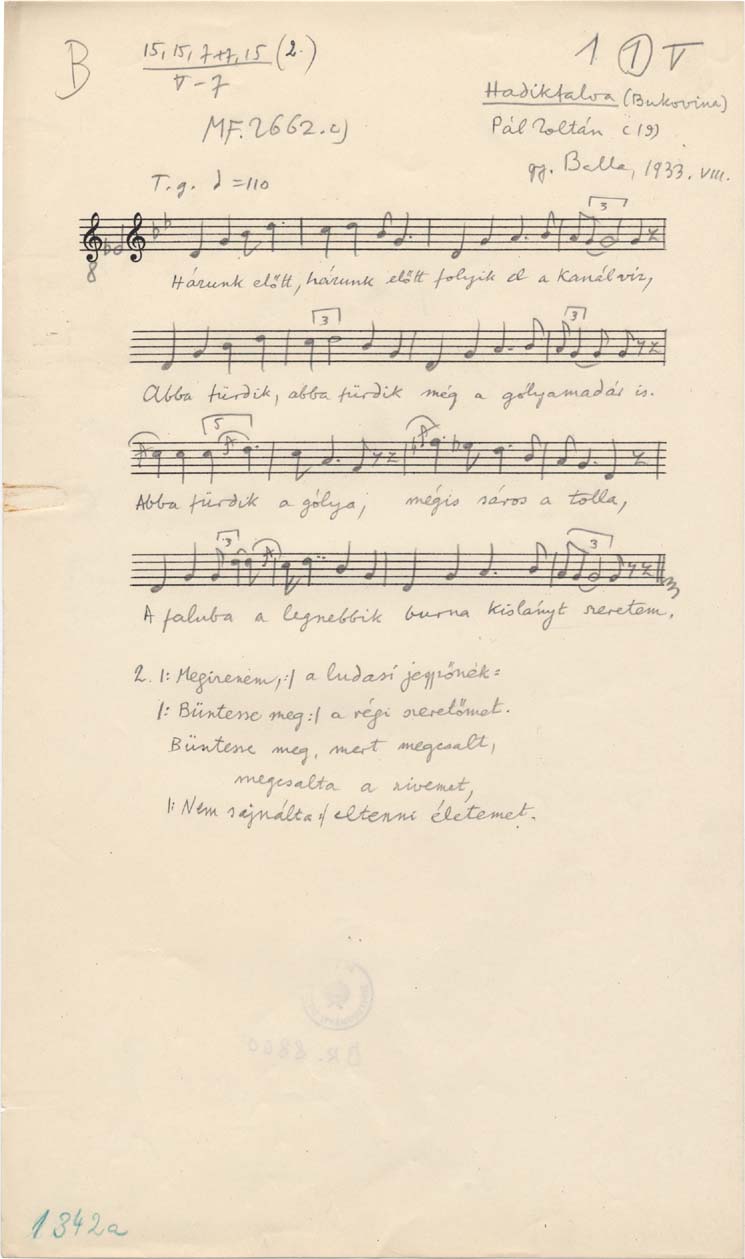 B
15, 15, 7+7, 15 (2.)
V-7
1 1 V
Hadikfalva (Bukovina)
MF. 2662.c)
Pál Zoltán (19)
gy. Balla, 1933. VIII.
T. g. =110
8
3
Hárunk előtt, hárunk előtt folyik el a kanálvíz,
3 3
Abba fürdik, abba fürdik még a gólyamadár is.
5
Abba fürdik a gólya, mégis sáros a tolla,
3 3
A faluba a legnebbik burna kislányt szeretem.
2. |: Megizenem, :| a ludasi jegyzőnek:
|: Büntesse meg :| a régi szeretőmet.
Büntesse meg, mert megcsalt,
megcsalta a szivemet,
|: Nem sajnálta :| eltenni életemet.
BR. 8800
1342a